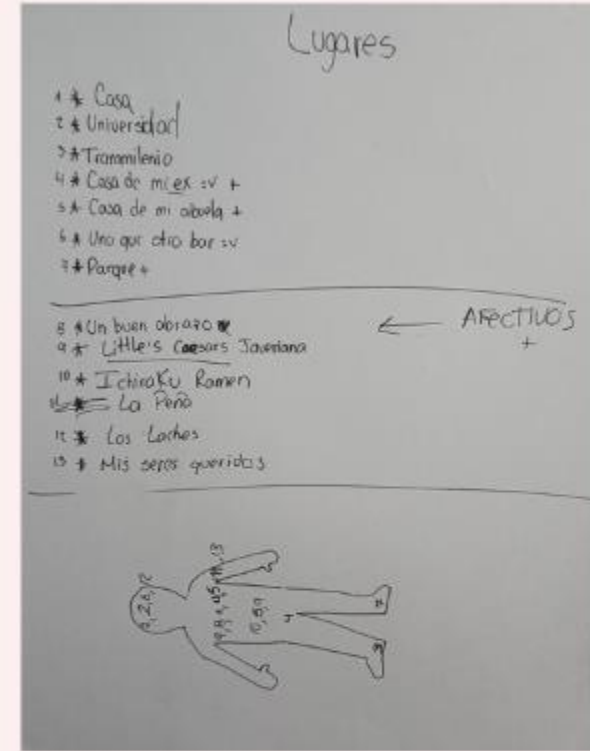 Lugares
1 * Casa
2 * Universidad
3 * Transmilenio
4 * Casa de mi ex :v +
5 * Casa de mi abuela +
6 * Uno que otro bar :v
7 * Parque +
8 * Un buen abrazo
9 * Little's Caesars Javeriana
10 * Ichiraku Ramen
La Peña
12 * Los Laches
13 * Mis seres queridos
← AFECTIVOS
+
10, 8, 9
7
3